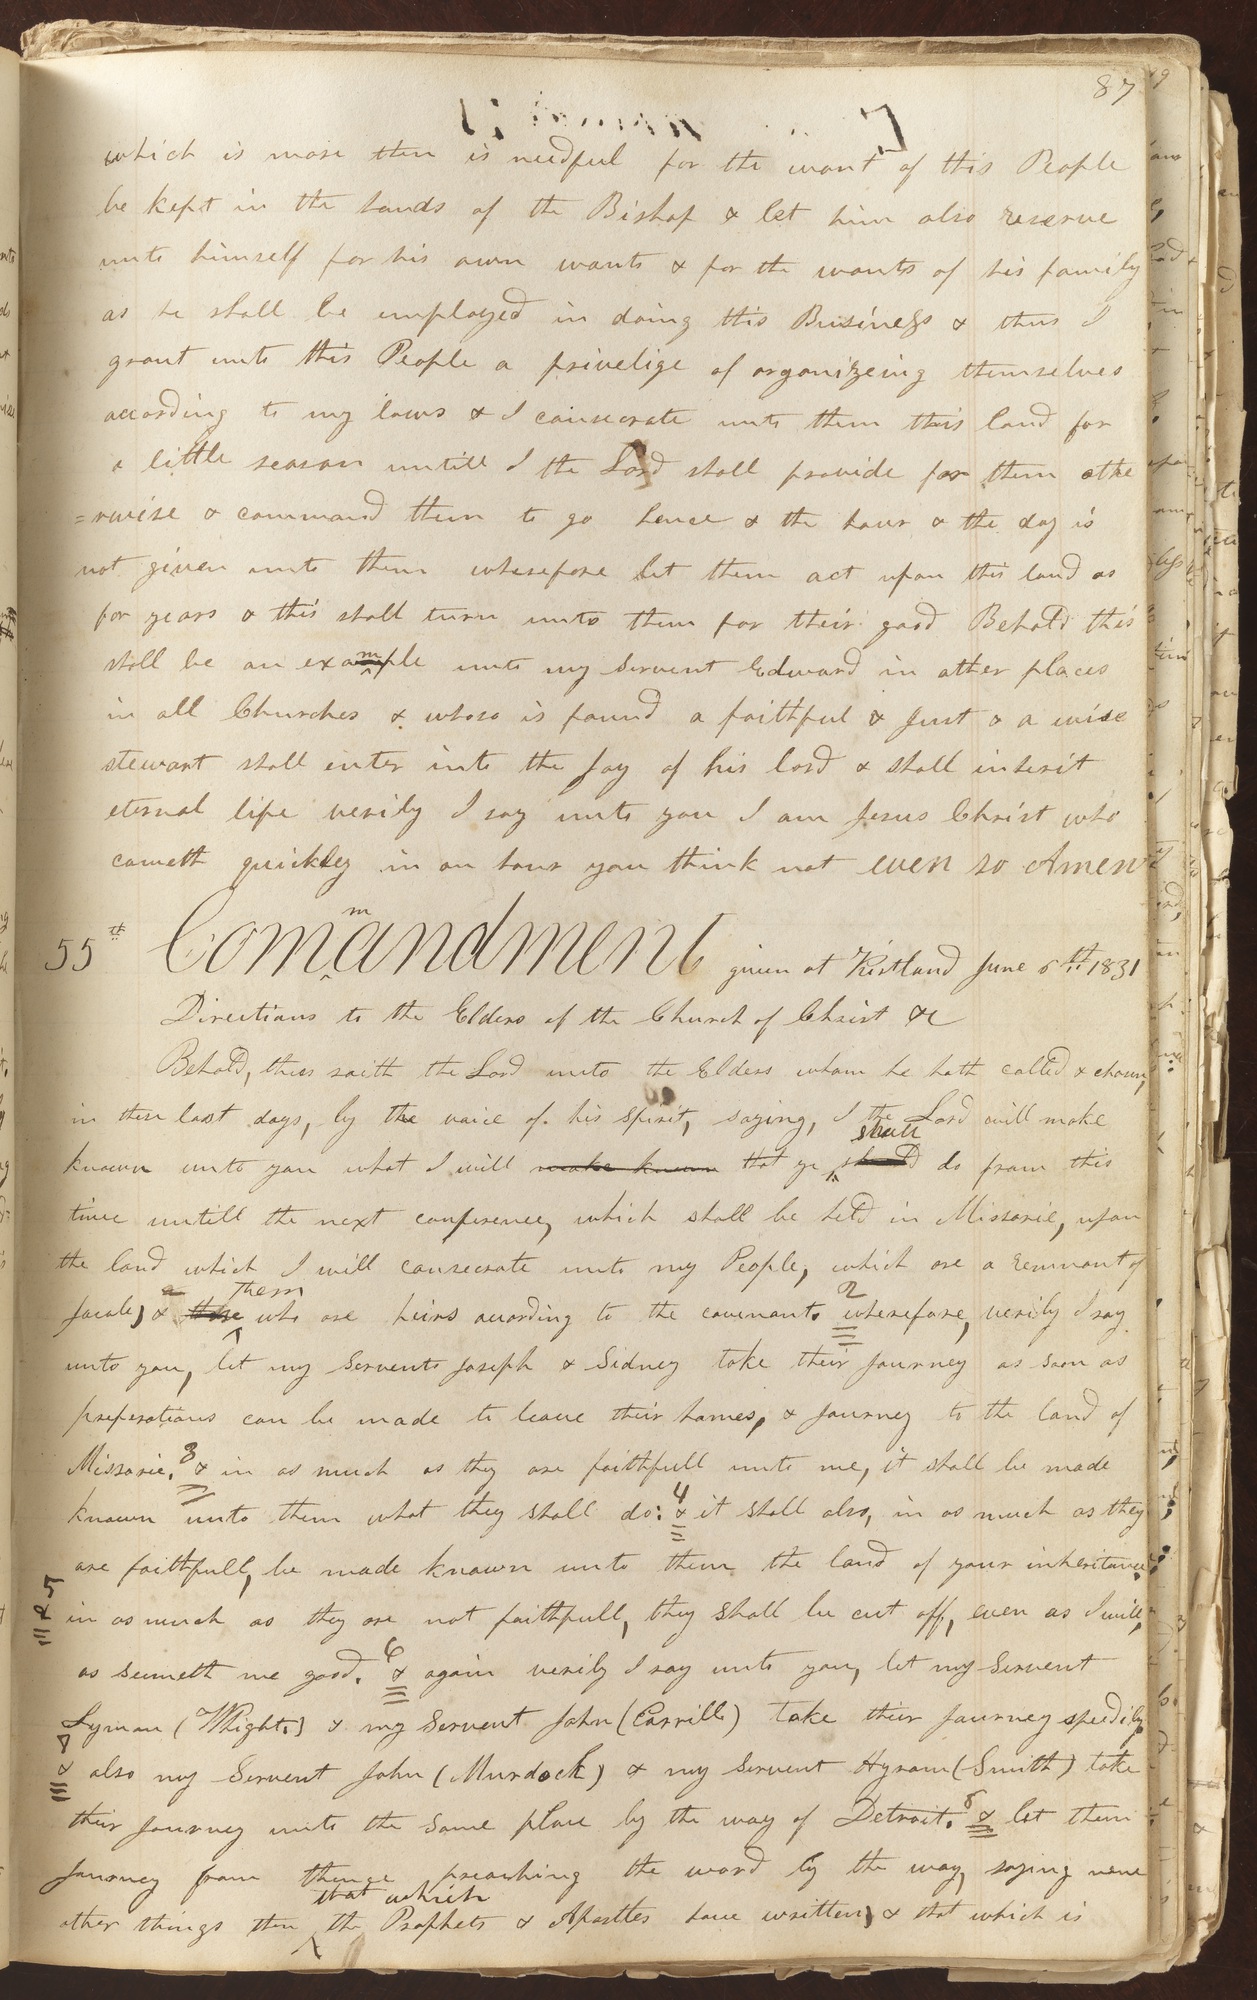 87
which is more then is needful for the want of this People
be kept in the hands of the Bishop & let him also reserve
unto himself for his own wants & for the wants of his family
as he shall be employed in doing this Business & thus I
grant unto this People a privelige of organizeing themselves
according to my laws & I consecrate unto them this land for
a little season untill I the Lord shall provide for them othe
=rwise & command them to go hence & the hour & the day is
not given unto them wherefore let them act upon this land as
for years & this shall turn unto them for their good Behold this
shall be an example unto my Servent Edward in other places
in all Churches & whoso is found a faithful & Just & a wise
stewart shall enter into the Joy of his lord & shall inherit
eternal life verily I say unto you I am Jesus Christ who
cometh quickley in an hour you think not even so Amen
55th Commandment given at Kirtland June 6th 1831
Directions to the Elders of the Church of Christ &c
Behold, thus saith the Lord unto the Elders whom he hath called & chosen,
in these last days, by the voice of his spirit, saying, I the Lord will make
shall
known unto you what I will make known that ye should do from this
time untill the next conference, which shall be held in Missorie, upon
the land which I will consecrate unto my People, which are a remnant of
them 2
Jacob, & those who are heirs according to the covenant. wherefore, verily I say
unto you, let my Servents Joseph & Sidney take their Journey as soon as
preperations can be made to leave their homes, & Journey to the land of
Missorie. 3 & in as much as they are faithfull unto me, it shall be made
known unto them what they shall do: 4 & it shall also, in as much as they
are faithfull, be made known unto them the land of your inheritance.
5 & in as much as they are not faithfull, they shall be cut off, even as I will,
as seemeth me good. 6 & again verily I say unto you, let my Servent
Lyman (Whight.) & my Servent John (Corrill) take their Journey speedily.
7 & also my Servent John (Murdock) & my Servent Hyram (Smith) take
their Journey unto the same place by the way of Detroit. 8 & let them
Journey from thence preaching the word by the way, saying none
that which
other things then the Prophets & Apostles have written, & that which is